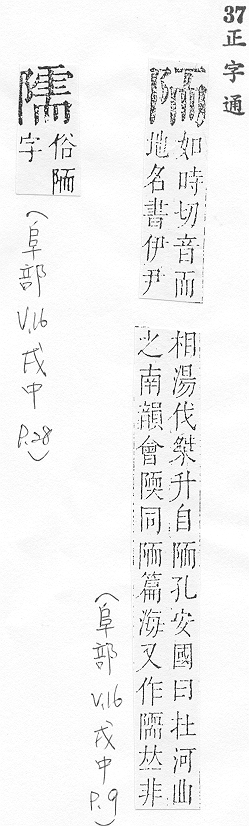 37 正字通
陑
如時切音而
地名書伊尹
相湯伐桀升自陑孔安國曰在河曲
之南韻會陾同陑篇海又作隭𠀤非
(阜部 V.16 戌中 P.9)
隭
俗陑
字
(阜部 V.16 戌中 P.28)